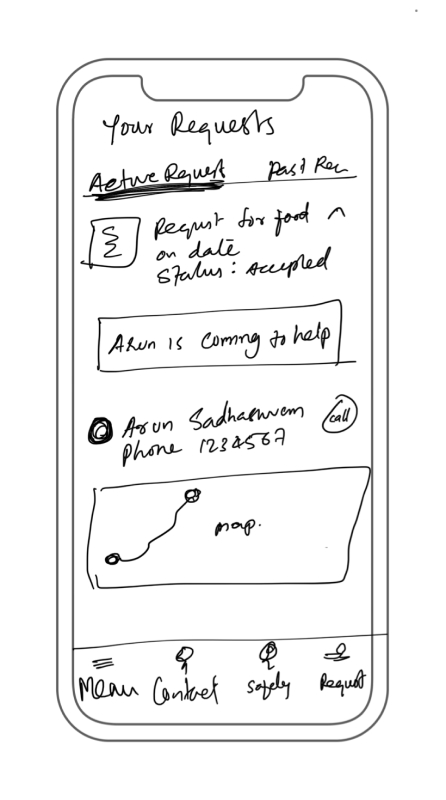 Your Requests
Active Request Past Req
Request for food
on date
Status: Accepted
Arun is coming to help
Arun
Phone 1234567
call
map.
Menu Contact Safely Request